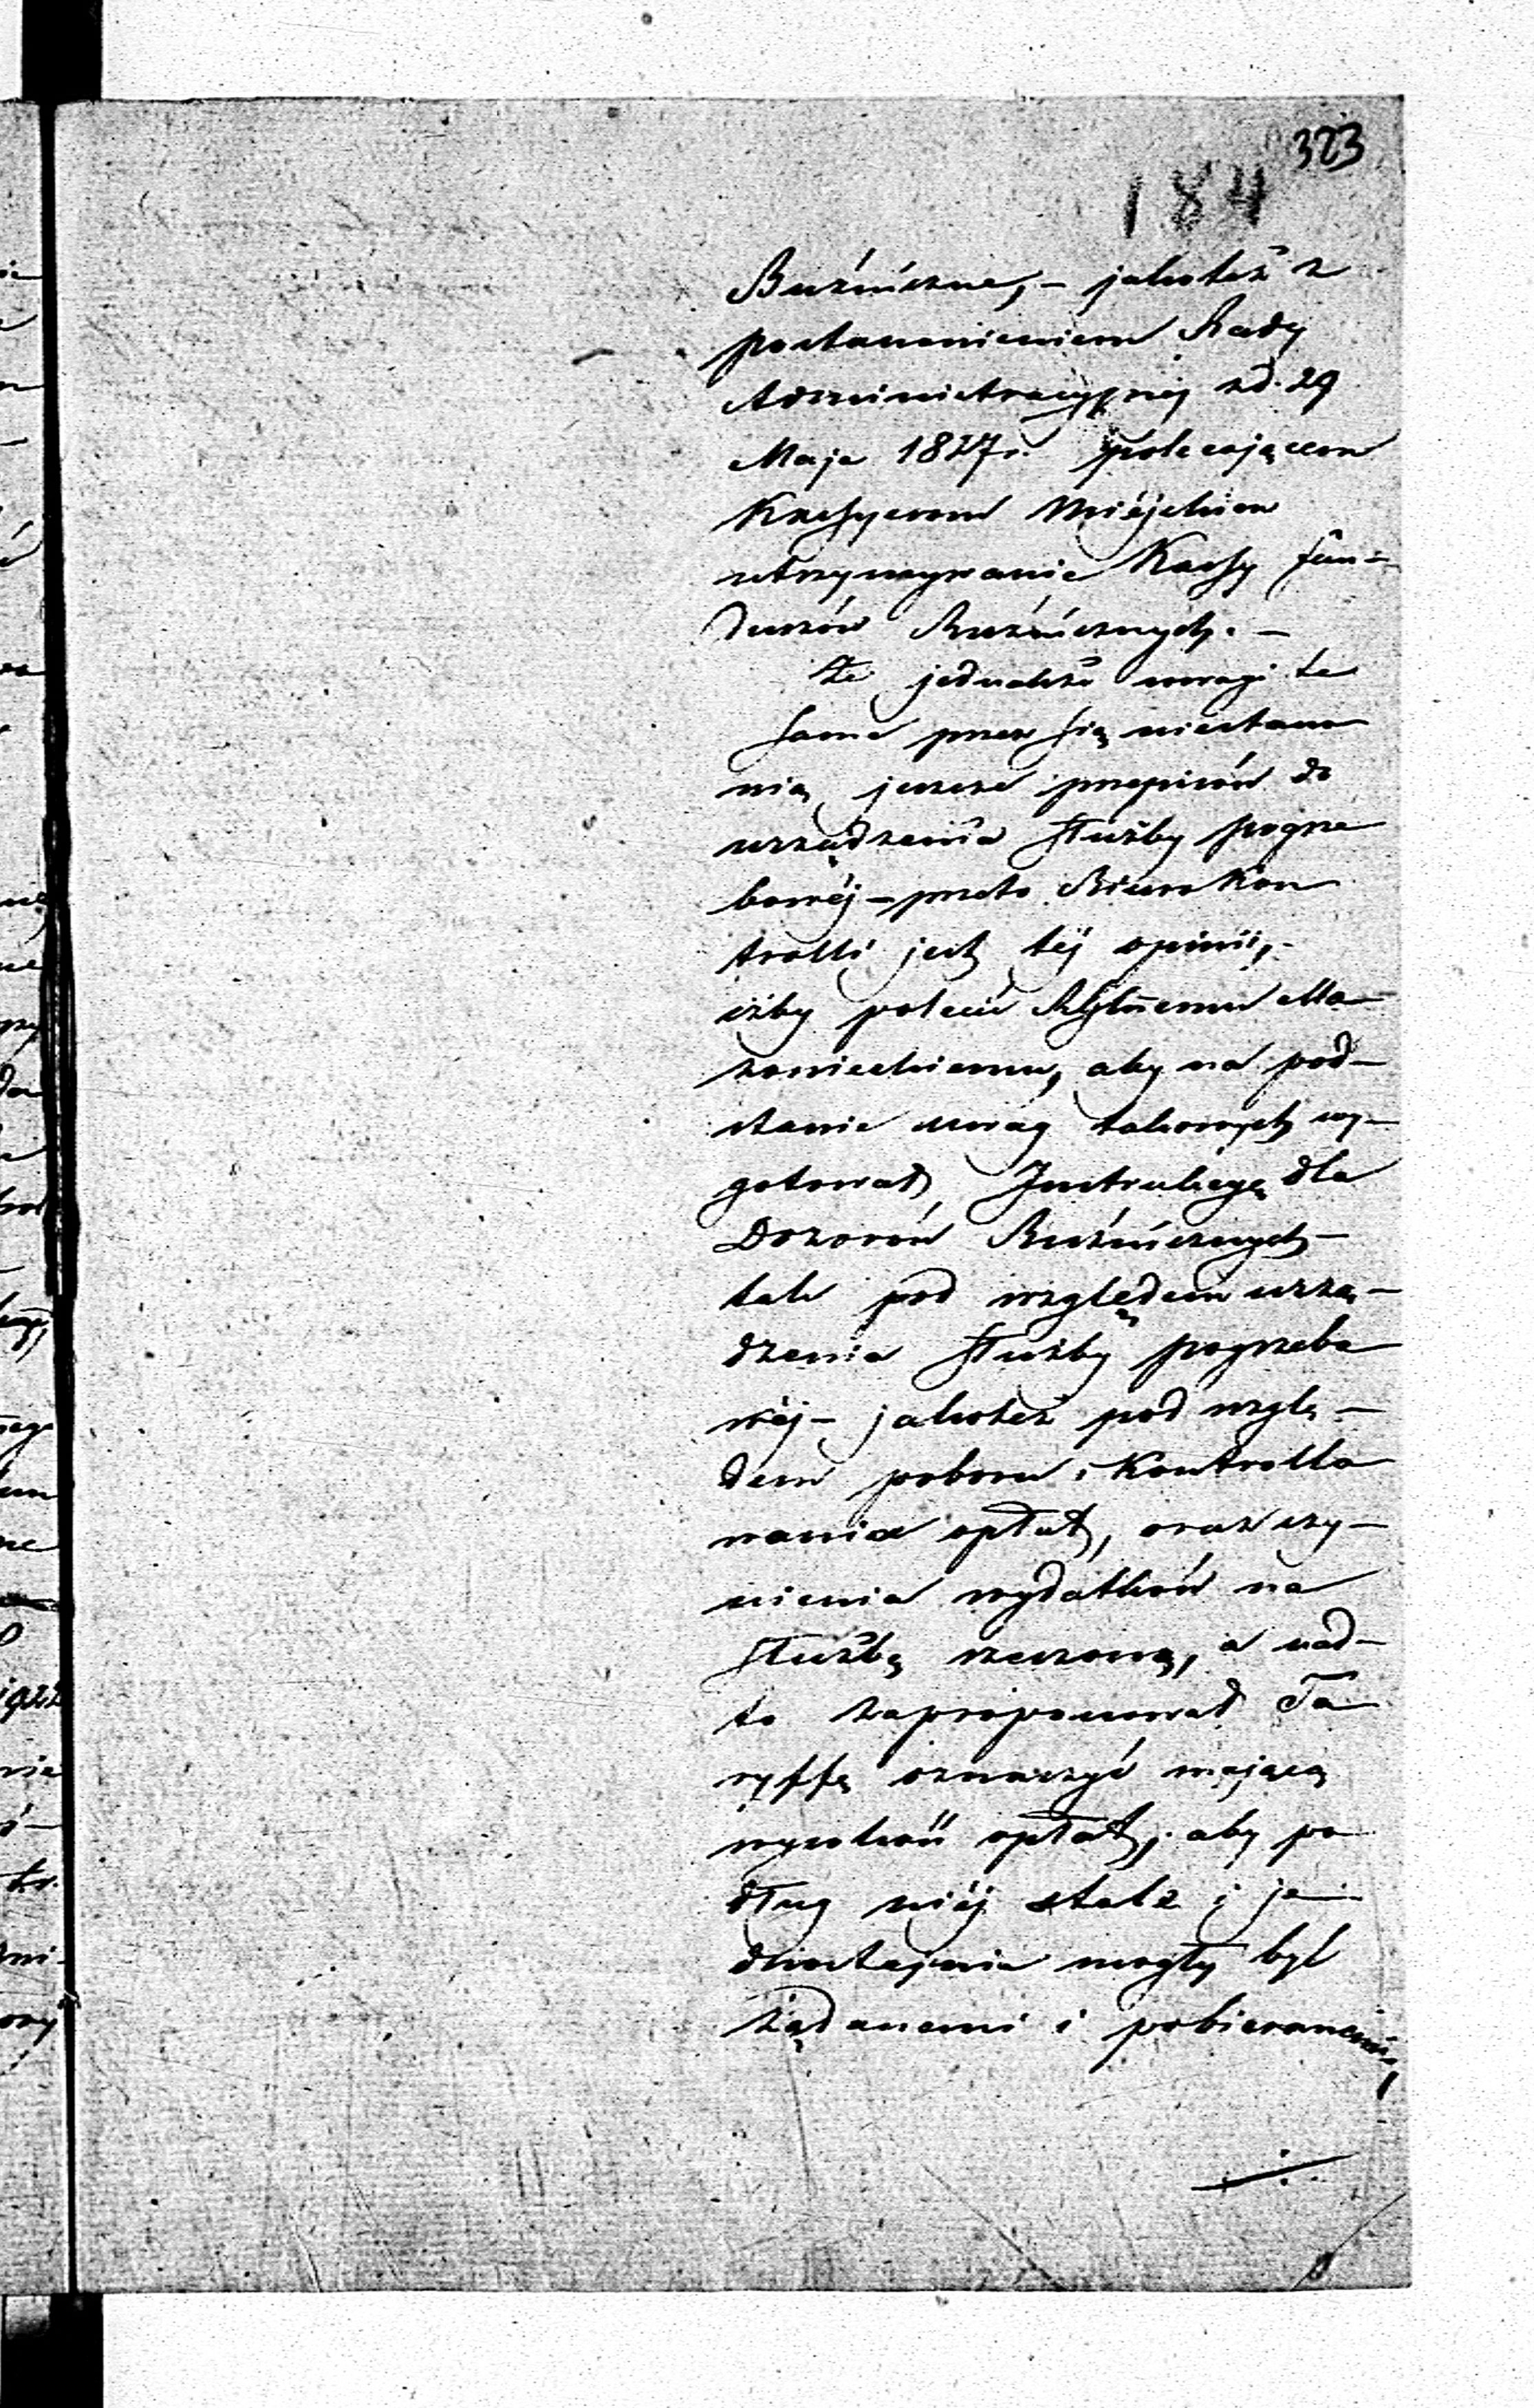 323
184
Buźnicze, – jakoteż z
postanowieniem Rady
Administracyjnej z d. 29
Maja 1827 r. polecającem
Kassyerom Miejskim
utrzymywanie Kassy fun-
duszów Bużniczych. –
Że jednakże uwagi te
same przez się niestano
wią jeszcze przepisów do
urządzenia służby pogrze
bowéj – przeto Biuro Kon
trolli jest téj opinii, –
iżby polecić Rządowi Gubern. Ma
zowieckiemu, aby na pod-
stawie uwag takowych wy-
gotował Instrukcyą dla
Dozorów Bużniczych –
tak pod względem urzą-
dzenia służby pogrzebo
wéj – jakoteż pod wzglę-
dem poboru i Kontrollo
wania opłat, oraz czy-
nienia wydatków na
służbę rzeczoną, a nad-
to zaproponował Ta
ryffę oznaczyć mającą
wysokość opłat, aby po
dług niéj stale i je-
dnostajnie mogły być
żądanemi i pobieranemi,